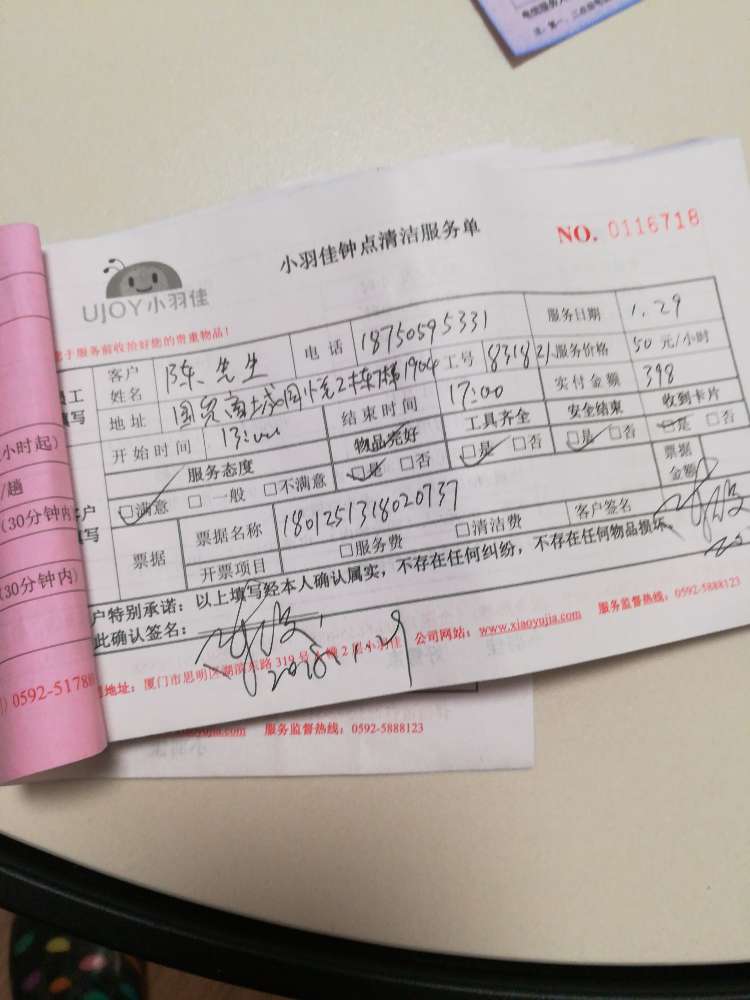 小羽佳钟点清洁服务单
NO. 0116718
UJOY小羽佳
于服务前收拾好您的贵重物品！
客户姓名 陈先生 电话 18750595331 服务日期 1.29
地址 工号 8318 服务价格 50元/小时
开始时间 13:00 结束时间 17:00 实付金额 398
服务态度 物品完好 工具齐全 安全结束 收到卡片
□满意 □一般 □不满意 □是 □否 □是 □否 □是 □否 □是 □否
票据 票据名称 1801251318020737 票据金额
开票项目 □服务费 □清洁费 客户签名
户特别承诺：以上填写经本人确认属实，不存在任何纠纷，不存在任何物品损坏。
此确认签名：
2018.1.29
地址：厦门市思明区湖滨东路319号 2 小羽佳 公司网站：www.xiaoyujia.com 服务监督热线：0592-5888123
小时起)
/趟
(30分钟内
30分钟内)
) 0592-5178
服务监督热线：0592-5888123